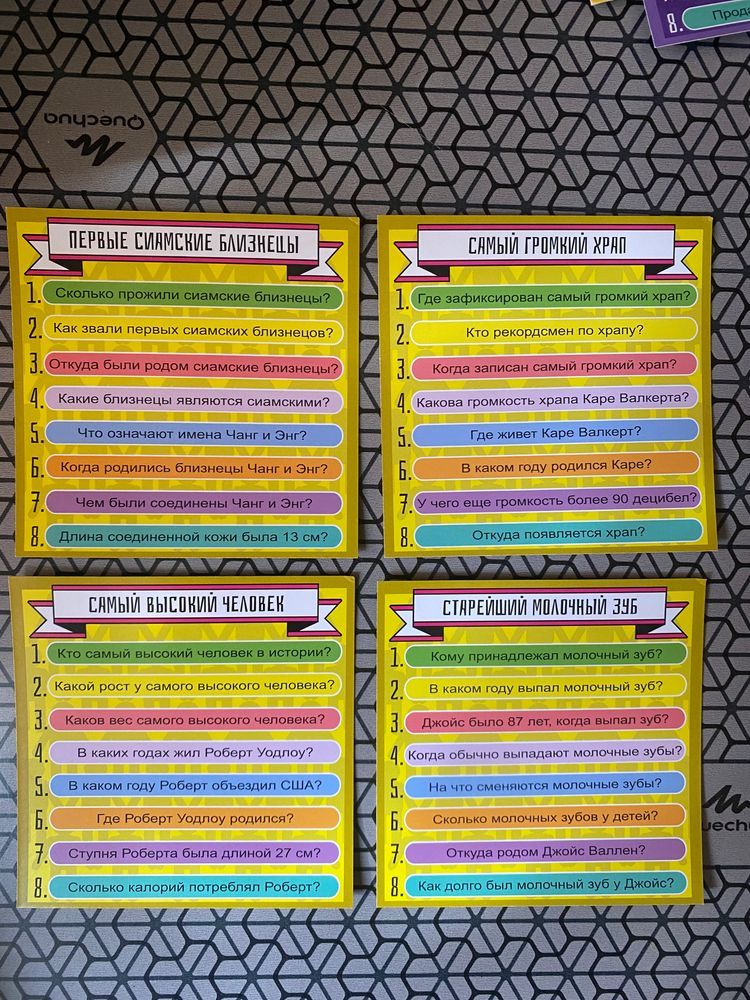 8. Прода
Quechua
ПЕРВЫЕ СИАМСКИЕ БЛИЗНЕЦЫ
1. Сколько прожили сиамские близнецы?
2. Как звали первых сиамских близнецов?
3. Откуда были родом сиамские близнецы?
4. Какие близнецы являются сиамскими?
5. Что означают имена Чанг и Энг?
6. Когда родились близнецы Чанг и Энг?
7. Чем были соединены Чанг и Энг?
8. Длина соединенной кожи была 13 см?
САМЫЙ ГРОМКИЙ ХРАП
1. Где зафиксирован самый громкий храп?
2. Кто рекордсмен по храпу?
3. Когда записан самый громкий храп?
4. Какова громкость храпа Каре Валкерта?
5. Где живет Каре Валкерт?
6. В каком году родился Каре?
7. У чего еще громкость более 90 децибел?
8. Откуда появляется храп?
САМЫЙ ВЫСОКИЙ ЧЕЛОВЕК
1. Кто самый высокий человек в истории?
2. Какой рост у самого высокого человека?
3. Каков вес самого высокого человека?
4. В каких годах жил Роберт Уодлоу?
5. В каком году Роберт объездил США?
6. Где Роберт Уодлоу родился?
7. Ступня Роберта была длиной 27 см?
8. Сколько калорий потреблял Роберт?
СТАРЕЙШИЙ МОЛОЧНЫЙ ЗУБ
1. Кому принадлежал молочный зуб?
2. В каком году выпал молочный зуб?
3. Джойс было 87 лет, когда выпал зуб?
4. Когда обычно выпадают молочные зубы?
5. На что сменяются молочные зубы?
6. Сколько молочных зубов у детей?
7. Откуда родом Джойс Валлен?
8. Как долго был молочный зуб у Джойс?
uechu